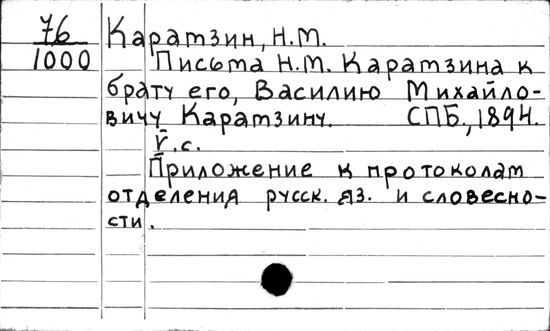 76
1000
Карамзин, Н.М.
Письма Н.М. Карамзина к
брату его, Василию Михайло-
вичу Карамзину. СПБ., 1894.
г.с.
Приложение к протоколам
отделения русск. яз. и словесно-
сти.